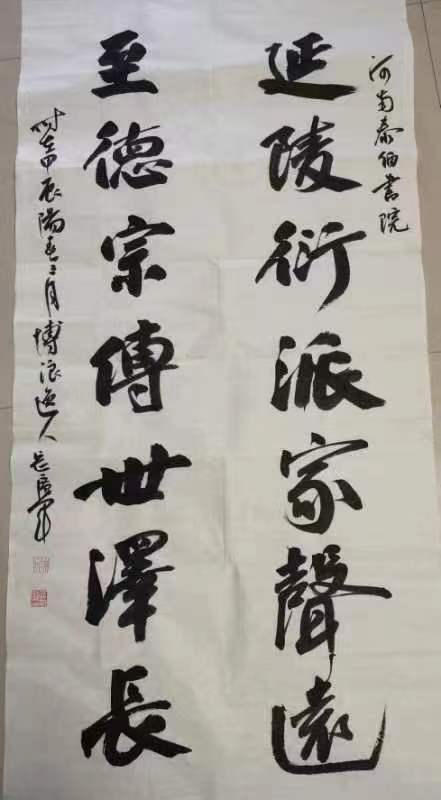 河南泰伯书院
延陵衍派家聲遠
至德宗傳世澤長
时在甲辰陽春三月博浪逸人